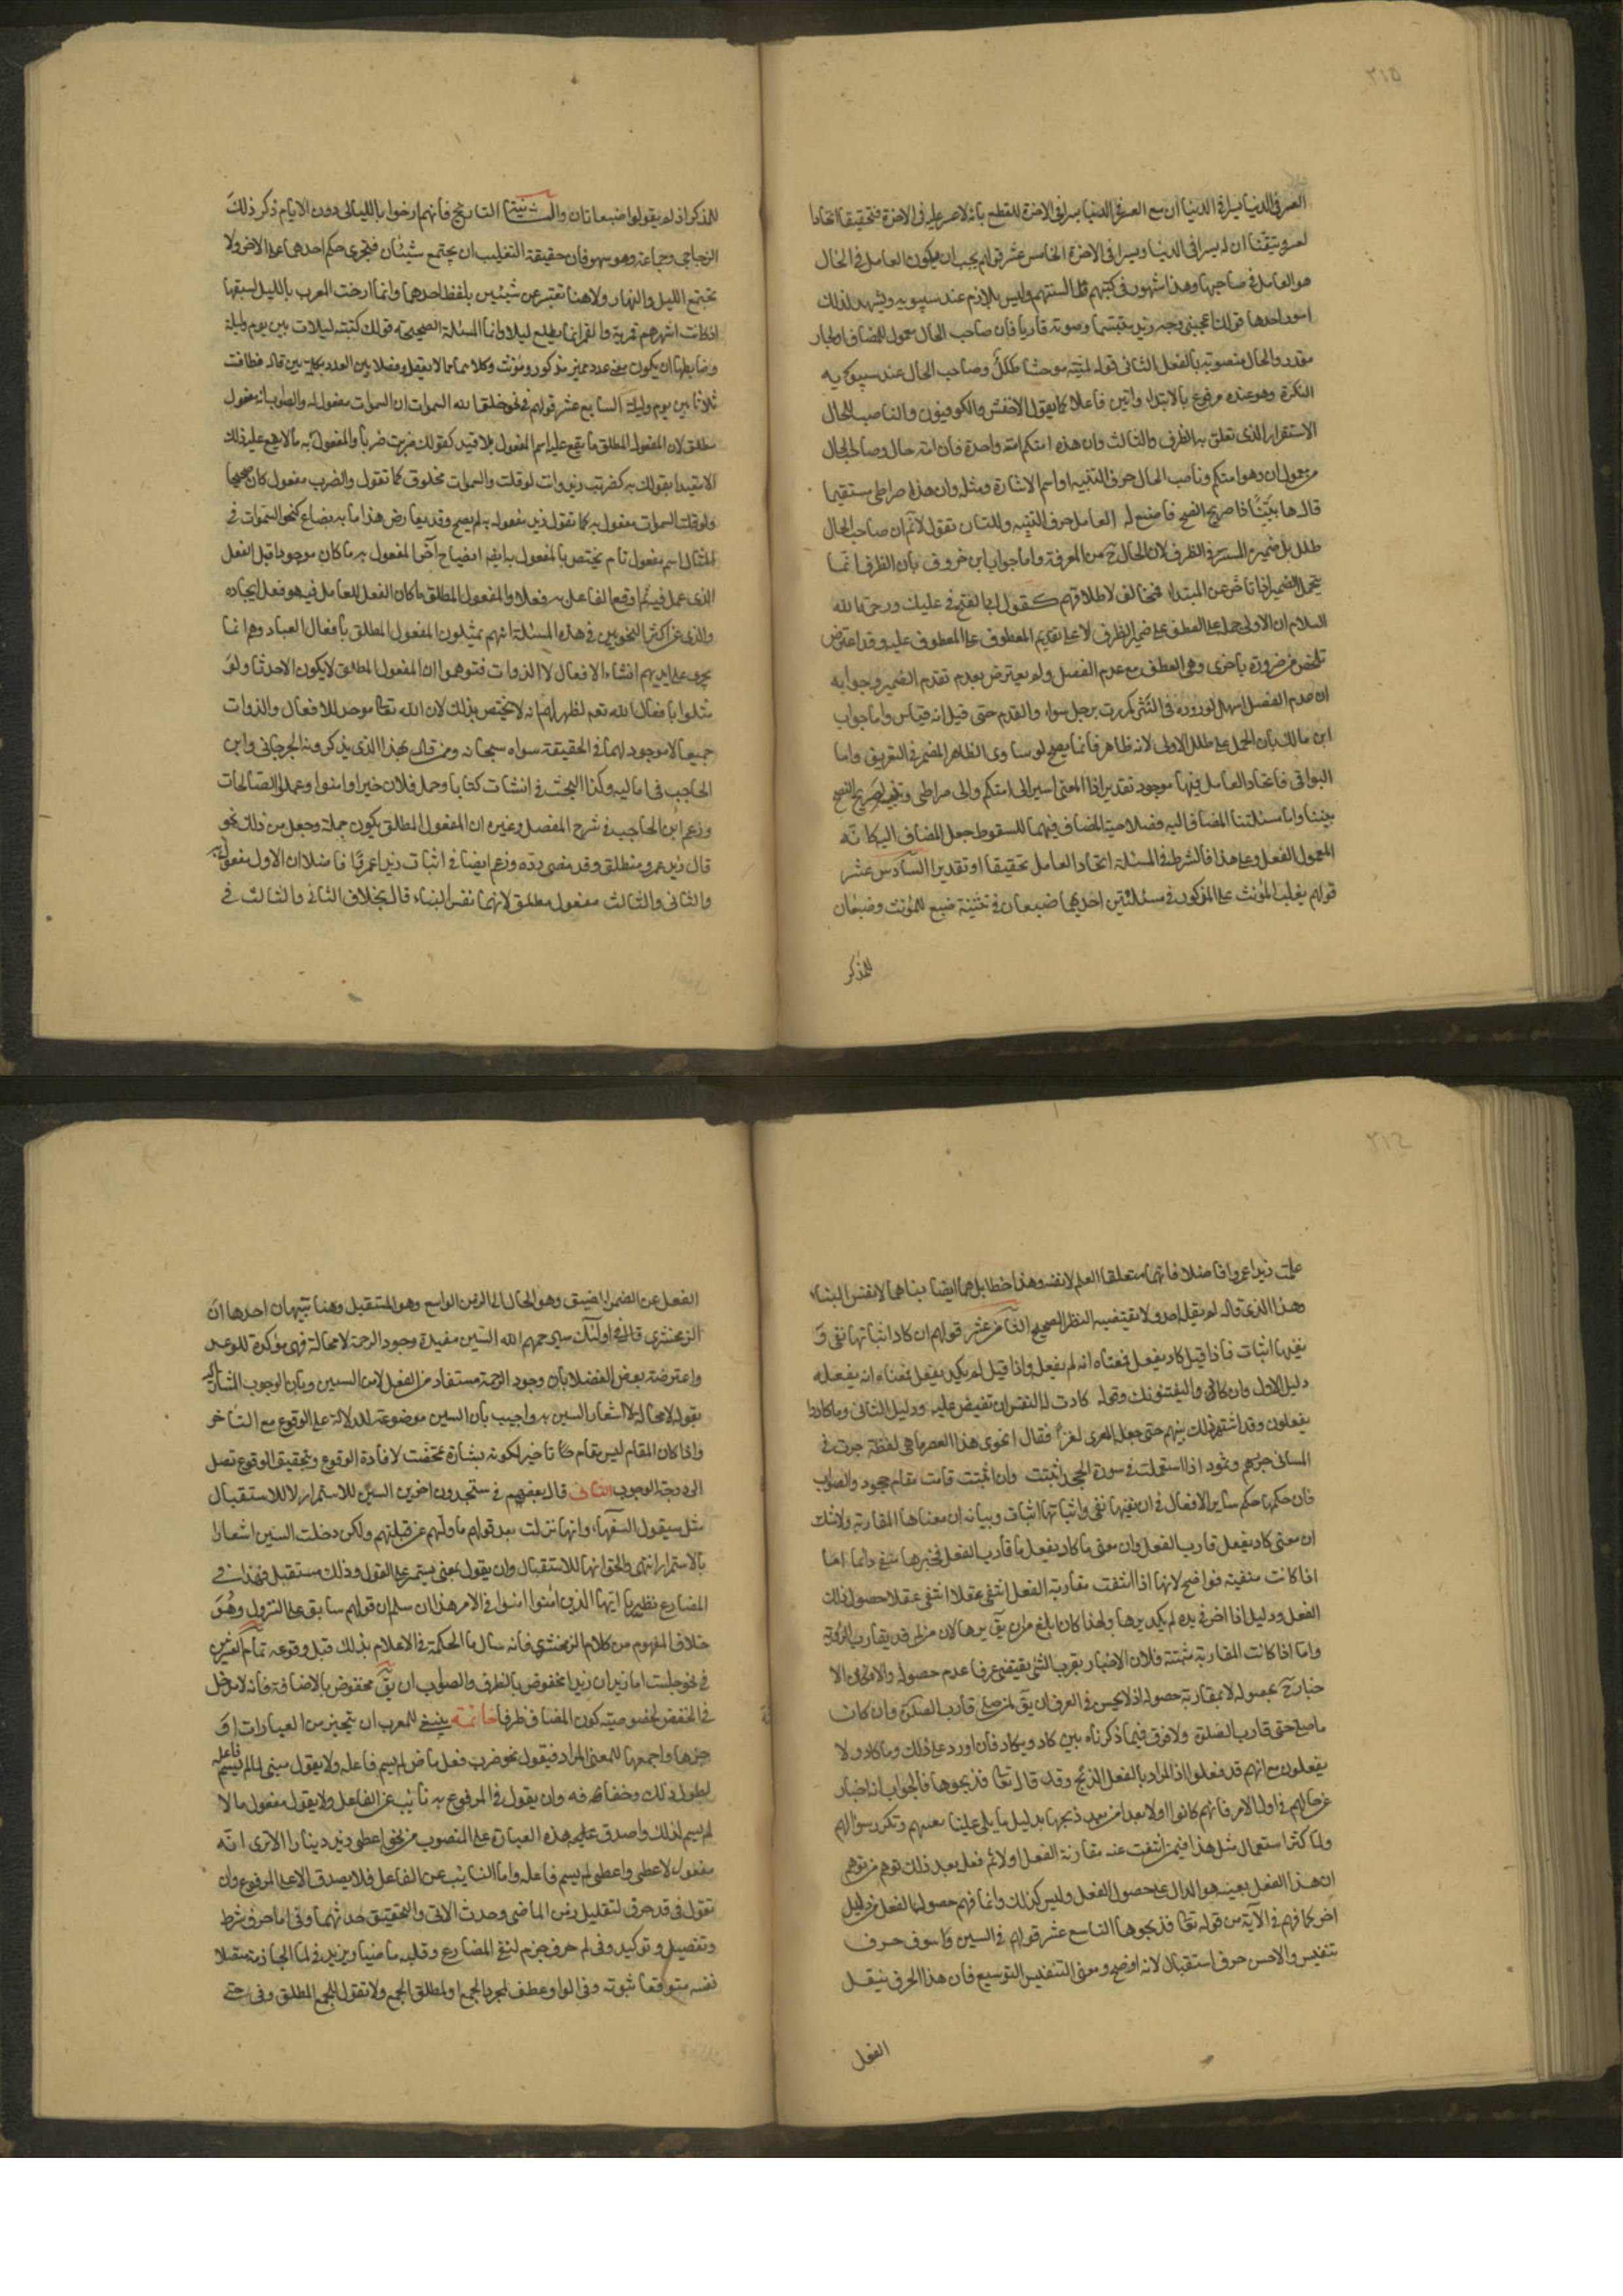 ٢١٥
العسر في الدنيا يسرا في الدنيا ان مع العسر في الدنيا يسرا في الاخرة للقطع بانه لا عسر عليه في الاخرة فتحقيقا اتحادا
لعسر وتيقنا ان له يسرا في الدنيا ويسرا في الاخرة الخامس عشر قولهم يجب ان يكون العامل في الحال
هو العامل في صاحبها وهذا مشهور في كتبهم وعلى السنتهم وليس بلازم عند سيبويه ويشهد لذلك
امور احدها قولك اعجبني وجه زيد متبسما وصوته قاريا فان صاحب الحال معمول للمضاف او لجار
مقدر والحال منصوبة بالفعل الثاني قوله لمية موحشا طلل وصاحب الحال عند سيبويه
النكرة وهو عنده مرفوع بالابتداء وليس فاعلا كما يقول الاخفش والكوفيون والناصب للحال
الاستقرار الذي تعلق به الظرف والثالث وان هذه امتكم امة واحدة فان امة حال وصاحب الحال
معمول ان وهو امتكم وناصب الحال حرف التنبيه او اسم الاشارة ومثله وان هذا صراطي مستقيما
قال ها بينا ذا صريح النصح فاصغ له العامل حرف التنبيه ولك ان تقول لا نم ان صاحب الحال
طلل بل ضميره المستتر في الظرف لان الحال ح من المعرفة واما جواب ابن خروف بان الظرف انما
يتحمل الضمير اذا تاخر عن المبتدا فمخالف لاطلاقهم كقول ابي الفتح في عليك ورحمة الله
السلام ان الاولى حمله على العطف على ضمير الظرف لا على تقديم المعطوف على المعطوف عليه وقد اعترض
تخلص من ضرورة باخرى وهي العطف مع عدم الفصل ولم يعترض بعدم تقدم الضمير وجوابه
ان عدم الفصل اسهل لوروده في النثر كمررت برجل سواء والعدم حتى قيل انه قياس واما جواب
ابن مالك بان الحمل على طلل اولى لانه ظاهر فانما يصح لو ساوى الظاهر المضمر في التعريف واما
البواقي فاتحاد العامل فيها موجود تقديرا اذ المعنى اشير الى امتكم والى صراطي وتنبه لصريح النصح
بينا واما مسئلتنا المضاف اليه فصلاحية المضاف فيهما للسقوط جعل المضاف اليه كانه
المعمول للفعل وعلى هذا فالشرط في المسئلة اتحاد العامل تحقيقا او تقديرا السادس عشر
قولهم يغلب المؤنث على المذكر في مسئلتين احديهما ضبعان في تثنية ضبع للمؤنث وضبعان
للمذكر
للمذكر اذ لم يقولوا ضبعانان والثانية التاريخ فانهم ارخوا بالليالى دون الايام ذكر ذلك
الزجاجي وجماعة وهو سهو فان حقيقة التغليب ان يجتمع شيئان فيجرى حكم احدهما على الاخر ولا
يجتمع الليل والنهار ولا هنا تعبير عن شيئين بلفظ احدهما وانما ارخت العرب بالليل لسبقها
اذ كانت اشهرهم قمرية والقمر انما يطلع ليلا وانما المسئلة الصحيحة قولك كتبته لثلاث بين يوم وليلة
وضابطها ان يكون معنا عدد مميز بمذكر ومؤنث وكلاهما مما لا يعقل وفصلا بين العدد بكلمة بين قال فطافت
ثلاثا بين يوم وليلة السابع عشر قولهم في نحو خلق الله السموات ان السموات مفعول به والصواب انه مفعول
مطلق لان المفعول المطلق ما يقع عليه اسم المفعول بلا قيد كقولك ضربت ضربا والمفعول به ما لا يقع عليه ذلك
الا مقيدا بقولك به كضربت زيدا وانت لو قلت والسموات مخلوق كما تقول والضرب مفعول كان صحيحا
ولو قلت السموات مفعول به كما تقول زيد مفعول به لم يصح وقد يعارض هذا ما به يضاع كنحو السموات في
المثال اسم مفعول تام يختص بالمفعول به ايضا ايضاح آخر المفعول به ما كان موجودا قبل الفعل
الذي عمل فيه ثم اوقع الفاعل به فعلا والمفعول المطلق ما كان الفعل العامل فيه هو فعل ايجاده
والذي غر اكثر النحويين في هذه المسئلة انهم يمثلون المفعول المطلق بافعال العباد وهم انما
يجرى على ايديهم انشاء الافعال لا الذوات فتوهموا ان المفعول المطلق لا يكون الا حدثا ولو
مثلوا بافعال الله تعم لظهر لهم انه لا يختص بذلك لان الله تعا موجد للافعال والذوات
جميعا لا موجد لهما في الحقيقة سواه سبحانه وممن قال بهذا الذي يذكرونه الجرجاني وابن
الحاجب في اماليه وكذا البحث في انشات كتابا وعمل فلان خيرا وامنوا وعملوا الصالحات
وزعم ابن الحاجب في شرح المفصل وغيره ان المفعول المطلق يكون جملة وجعل من ذلك نحو
قال زيد عمرو منطلق وقد مضى رده وزعم ايضا في انبات زيدا عمرًا فاضلا ان الاول مفعول به
والثاني والثالث مفعول مطلق لانهما نفس النباء قال بخلاف الثاني والثالث في
٢١٦
علمت زيدا عمروا فاضلا فانهما متعلقا العلم لا نفسه وهذا خطا بل هما ايضا منباهما لا نفس النباء
وهذا الذي قاله لم يقله احد ولا يقتضيه النظر الصحيح الثامن عشر قولهم ان كاد اثباتها نفي و
نفيها اثبات فاذا قيل كاد يفعل فمعناه انه لم يفعل واذا قيل لم يكد يفعل فمعناه انه يفعله
دليل الاول وان كادوا ليفتنونك وقوله كادت النفس ان تفيض عليه ودليل الثاني وما كادوا
يفعلون وقد اشتهر ذلك بينهم حتى جعله المعرى لغزا فقال انحوى هذا العصر ما هى لفظة جرت في
لسانى جرهم وثمود اذا استعملت في صورة الجحد اثبتت وان اثبتت قامت مقام جحود والصواب
فان حكمها حكم ساير الافعال في ان نفيها نفى واثباتها اثبات وبيانه ان معناها المقاربة ولا شك
ان معنى كاد يفعل قارب الفعل وان معنى ما كاد يفعل ما قارب الفعل فخبرها منفى دائما اما
اذا كانت منفية فواضح لانها اذا انتفت مقاربة الفعل انتفى عقلا حصول ذلك
الفعل ودليله اذا اخرج يده لم يكد يريها ولهذا كان ابلغ من ان يق لم يرها لان من لم ير قد يقارب الرؤية
واما اذا كانت المقاربة مثبتة فلان الاخبار بقرب الشئ يقتضى عرفا عدم حصوله والا لكان الا
خبار ح بحصوله لا بمقاربة حصوله اذ لا يحسن في العرف ان يق لمن صلى قارب الصلوة وان كان
ما صلى حتى قارب الصلوة ولا فرق فيما ذكرناه بين كاد ويكاد فان اورد على ذلك وما كادوا
يفعلون مع انهم قد فعلوا اذ المراد بالفعل الذبح وقد قال تعا فذبحوها فالجواب انه اخبار
عن حالهم في اول الامر فانهم كانوا اولا بعداء من ذبحها بدليل ما يتلى علينا من تعنتهم وتكرر سؤالهم
ولما كثر استعمال مثل هذا فيمن انتفت عنه مقاربة الفعل اولا ثم فعل بعد ذلك توهم من توهم
ان هذا الفعل بعينه هو الدال على حصول الفعل وليس كذلك وانما فهم حصول الفعل من دليل
اخر كما فهم في الآية من قوله تعا فذبحوها التاسع عشر قولهم في السين وسوف حرف
تنفيس والاحسن حرف استقبال لانه اوضح ومعنى التنفيس التوسيع فان هذا الحرف ينقل
الفعل
الفعل عن الزمن الضيق وهو الحال الى الزمن الواسع وهو المستقبل وهنا تنبيهان احدهما ان
الزمخشرى قال في اولئك سيرحمهم الله السين مفيدة وجود الرحمة لا محالة فهى مؤكدة للوعد
واعترضه بعض الفضلا بان وجود الرحمة مستفاد من الفعل لا من السين وبان الوجوب المشار اليه
بقوله لا محالة لا اشعار للسين به واجيب بان السين موضوعة للدلالة على الوقوع مع التاخر
واذا كان المقام ليس مقام تاخير لكونه بشارة تمحضت لافادة الوقوع وبتحقيق الوقوع تصل
الى درجة الوجوب الثاني قال بعضهم في ستجدون اخرين السين للاستمرار لا للاستقبال
مثل سيقول السفهاء وانها نزلت بعد قولهم ما وليهم عن قبلتهم ولكن دخلت السين اشعارا
بالاستمرار انتهى والحق انها للاستقبال وان يقول بمعنى يستمر على القول وذلك مستقبل فهذا في
المضارع نظير يا ايها الذين امنوا امنوا في الامر هذا ان سلم ان قولهم سابق على النزول وهو
خلاف المفهوم من كلام الزمخشرى فانه سال ما الحكمة في الاعلام بذلك قبل وقوعه تمام العشرين
في نحو جلست امام زيد ان زيدا مخفوض بالظرف والصواب ان يق مخفوض بالاضافة فانه لا مدخل
في الخفض لخصوصية كون المضاف ظرفا خاتمة ينبغي للمعرب ان يتخير من العبارات او
جزها واجمعها للمعنى المراد فيقول نحو ضرب فعل ماض لم يسم فاعله ولا يقول مبنى لما لم يسم فاعله
لطول ذلك وخفائه وان يقول في المرفوع به نائب عن الفاعل ولا يقول مفعول ما لا
لم يسم لذلك ولصدق هذه العبارة على المنصوب من نحو اعطى زيد دينارا الا ترى انه
مفعول لاعطى واعطى لم يسم فاعله واما النائب عن الفاعل فلا يصدق الا على المرفوع وان
تقول في قد حرف لتقليل زمن الماضي وحدث الاتى ولتحقيق حدثهما وفي اما حرف شرط
وتفصيل وتوكيد وفي لم حرف جزم لنفى المضارع وقلبه ماضيا ويزيد في لما الجازمة متصلا
نفيه متوقعا ثبوته وفي الواو عطف لمجرد الجمع او لمطلق الجمع ولا تقول للجمع المطلق وفي حتى